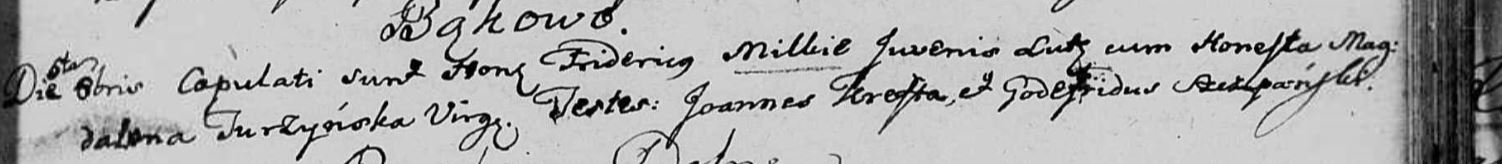 Bąkowo.
Die 6ta 8bris Copulati sunt Hon9 Fridericg Millie Juvenis Lutg cum Honesta Mag:
dalena Turzyńska Virgę. Testes: Joannes Kresta, et Godefridus Szczepański.